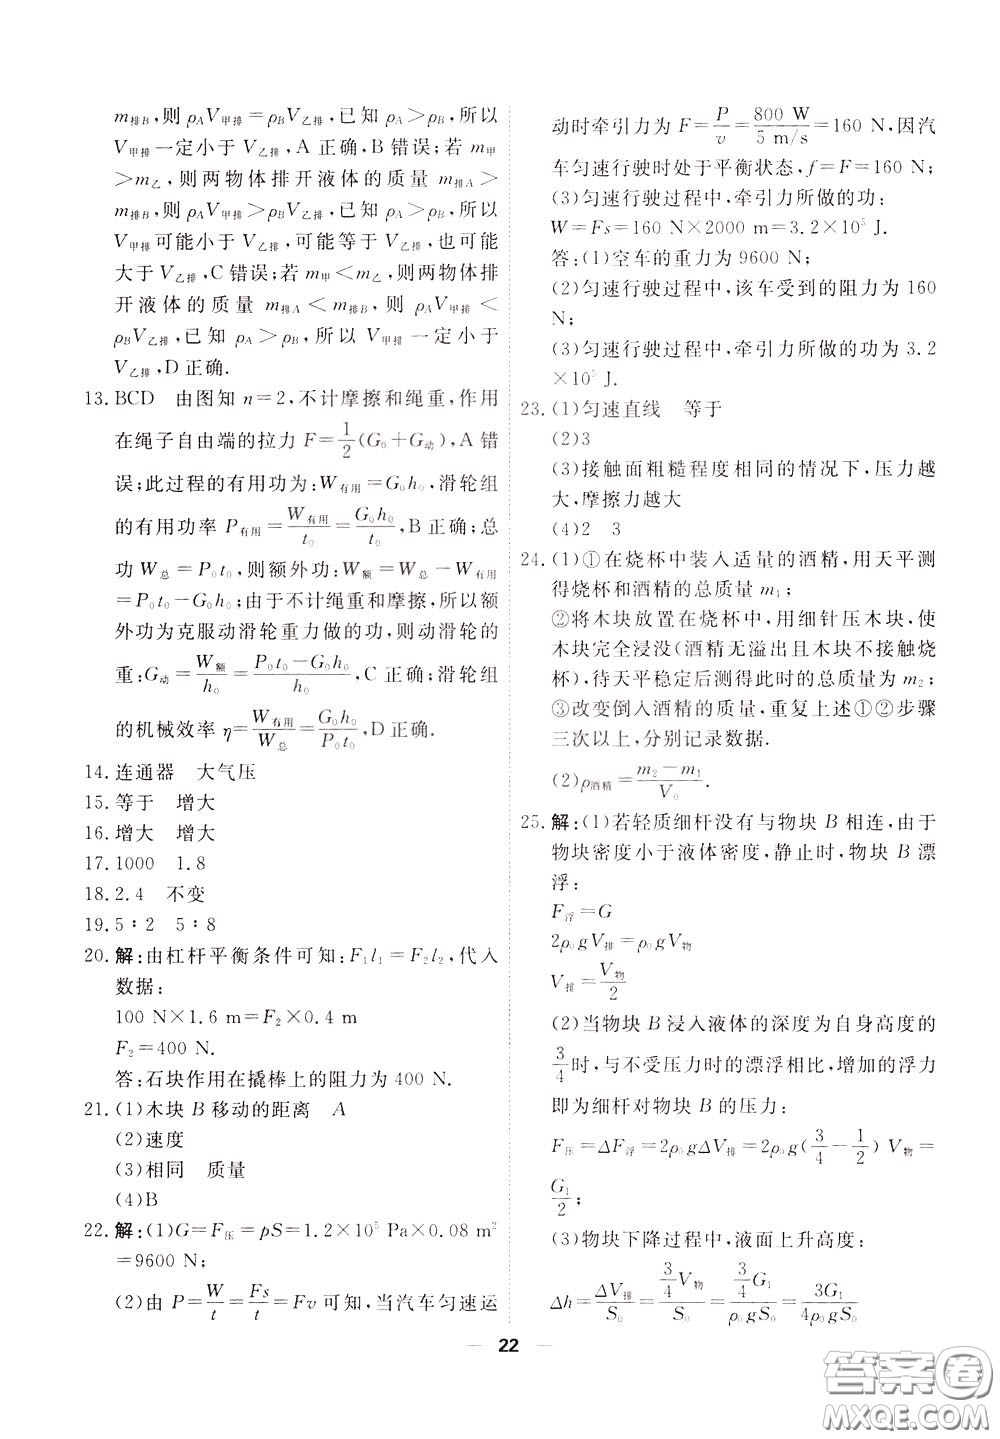 m排B,则 ρAV甲排=ρBV乙排,已知 ρA>ρB,所以
V甲排一定小于V乙排,A正确,B错误;若 m甲
>m乙,则两物体排开液体的质量 m排A>
m排B,则 ρAV甲排>ρBV乙排,已知 ρA>ρB,所以
V甲排可能小于V乙排,可能等于V乙排,也可能
大于V乙排,C错误;若 m甲<m乙,则两物体排
开液体的质量 m排A<m排B,则 ρAV甲排<
ρBV乙排,已知 ρA>ρB,所以 V甲排一定小于
V乙排,D正确.
13.BCD 由图知n=2,不计摩擦和绳重,作用
在绳子自由端的拉力F=1/2(G0+G动),A错
误;此过程的有用功为:W有用=G0h0,滑轮组
的有用功率P有用=W有用/t0=G0h0/t0,B正确;总
功W总=P0t0,则额外功:W额=W总-W有用
=P0t0-G0h0;由于不计绳重和摩擦,所以额
外功为克服动滑轮重力做的功,则动滑轮的
重:G动=W额/h0=(P0t0-G0h0)/h0,C正确;滑轮组
的机械效率η=W有用/W总=G0h0/P0t0,D正确.
14.连通器 大气压
15.等于 增大
16.增大 增大
17.1000 1.8
18.2.4 不变
19.5:2 5:8
20.解:由杠杆平衡条件可知:F1l1=F2l2,代入
数据:
100 N×1.6 m=F2×0.4 m
F2=400 N.
答:石块作用在撬棒上的阻力为400 N.
21.(1)木块B移动的距离 A
(2)速度
(3)相同 质量
(4)B
22.解:(1)G=F压=pS=1.2×10⁵ Pa×0.08 m²
=9600 N;
(2)由P=W/t=Fs/t=Fv可知,当汽车匀速运
动时牵引力为F=P/v=800 W/5 m/s=160 N,因汽
车匀速行驶时处于平衡状态,f=F=160 N;
(3)匀速行驶过程中,牵引力所做的功:
W=Fs=160 N×2000 m=3.2×10⁵ J.
答:(1)空车的重力为9600 N;
(2)匀速行驶过程中,该车受到的阻力为160
N;
(3)匀速行驶过程中,牵引力所做的功为3.2
×10⁵ J.
23.(1)匀速直线 等于
(2)3
(3)接触面粗糙程度相同的情况下,压力越
大,摩擦力越大
(4)2 3
24.(1)①在烧杯中装入适量的酒精,用天平测
得烧杯和酒精的总质量m1;
②将木块放置在烧杯中,用细针压木块,使
木块完全浸没(酒精无溢出且木块不接触烧
杯),待天平稳定后测得此时的总质量为m2;
③改变倒入酒精的质量,重复上述①②步骤
三次以上,分别记录数据.
(2)ρ酒精=(m2-m1)/V0.
25.解:(1)若轻质细杆没有与物块B相连,由于
物块密度小于液体密度,静止时,物块B漂
浮:
F浮=G
2ρ0gV排=ρ0gV物
V排=V物/2
(2)当物块B浸入液体的深度为自身高度的
3/4时,与不受压力时的漂浮相比,增加的浮力
即为细杆对物块B的压力:
F压=ΔF浮=2ρ0gΔV排=2ρ0g(3/4-1/2)V物=
G1/2;
(3)物块下降过程中,液面上升高度:
Δh=ΔV排/S0=3/4V物/S0=3/4G1/ρ0gS0=3G1/4ρ0gS0
22
答案圈
MXQE.COM